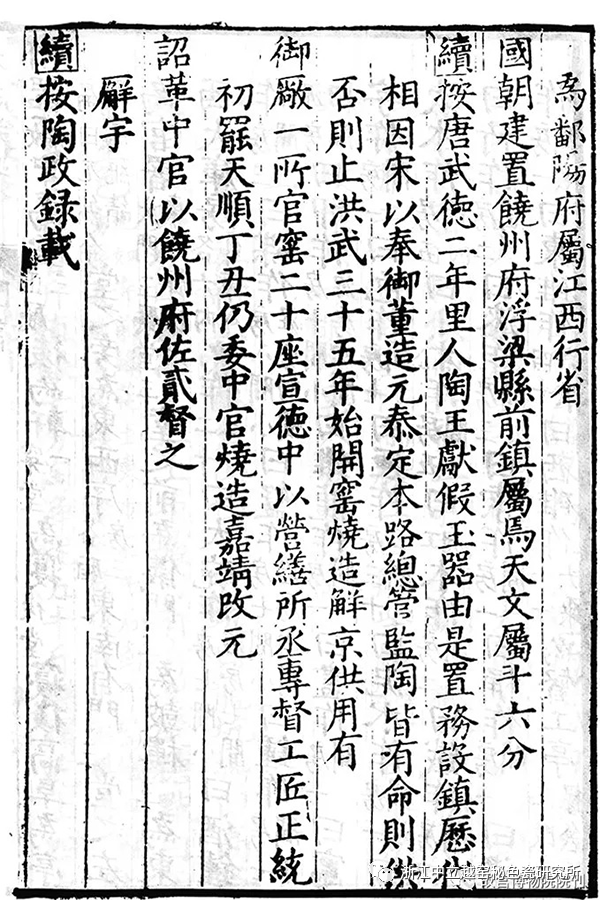 為鄱陽府屬江西行省
國朝建置饒州府浮梁縣前鎮屬焉天文屬斗六分
續按唐武德二年里人陶王獻假玉器由是置務設鎮歷代
相因宋以奉御董造元泰定本路總管監陶皆有命則供
否則止洪武三十五年始開窯燒造解京供用有
御廠一所官窯二十座宣德中以營繕所丞專督工匠正統
初罷天順丁丑仍委中官燒造嘉靖改元
詔革中官以饒州府佐貳督之
廨宇
續按陶政録載
浙江中立越窑秘色瓷研究所
故宫博物院院刊